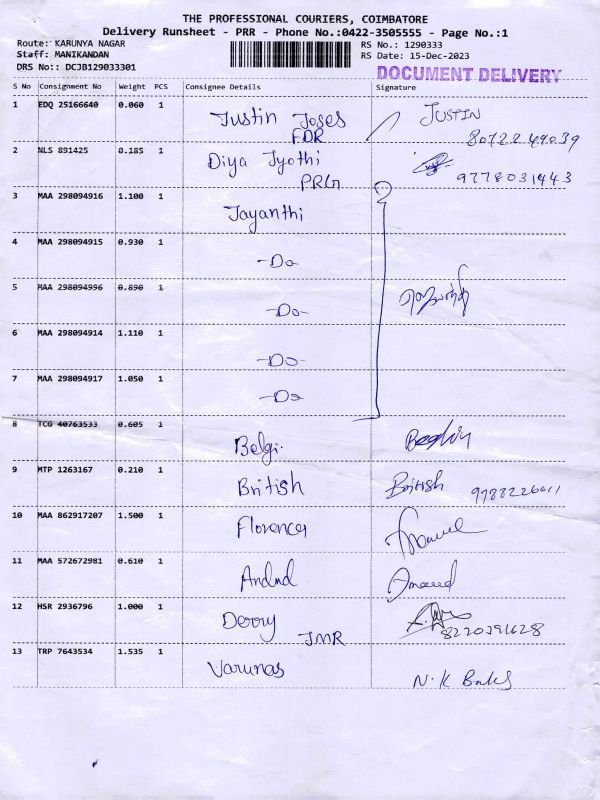 THE PROFESSIONAL COURIERS, COIMBATORE
Delivery Runsheet - PRR - Phone No.:0422-3505555 - Page No.:1
Route: KARUNYA NAGAR RS No.: 1290333
Staff: MANIKANDAN RS Date: 15-Dec-2023
DRS No:: DCJB129033301
DOCUMENT DELIVERY
S No Consignment No Weight PCS Consignee Details Signature
1 EDQ 25166640 0.060 1 Justin Joses JUSTIN
FDR
2 NLS 891425 0.185 1 Diya Jyothi
PRG 9778031443
3 MAA 298094916 1.100 1 Jayanthi
4 MAA 298094915 0.930 1 -Do-
5 MAA 298094996 0.890 1 -Do-
6 MAA 298094914 1.110 1 -Do-
7 MAA 298094917 1.050 1 -Do
8 TCG 40763533 0.605 1 Belgi.
9 MTP 1263167 0.210 1 British British
10 MAA 862917207 1.500 1
11 MAA 572672981 0.610 1
12 HSR 2936796 1.000 1 Derry
JMR
13 TRP 7643534 1.535 1 Varunas N.K